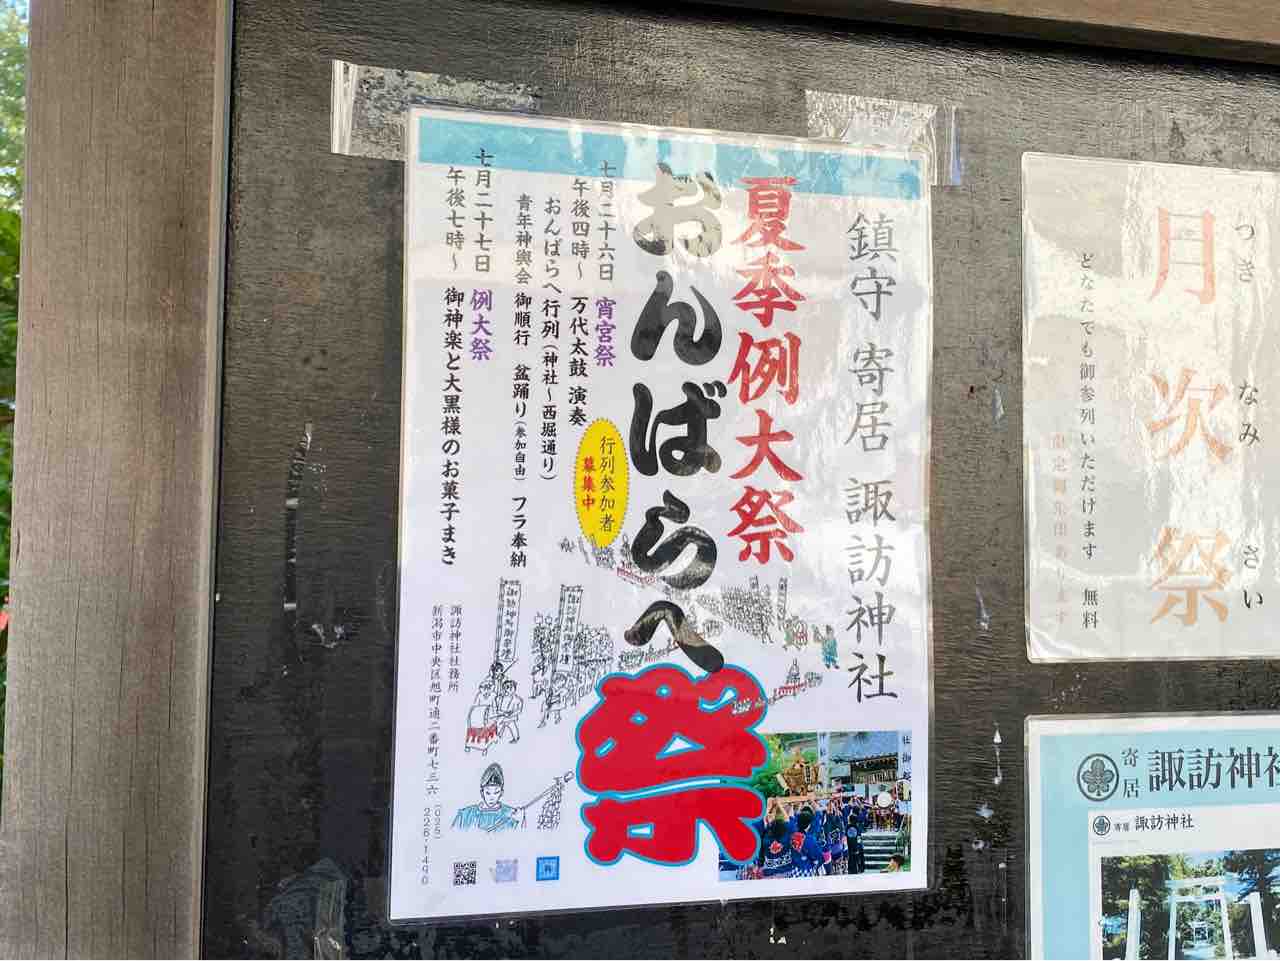 鎮守 寄居 諏訪神社
夏季例大祭
おんばらへ祭
七月二十六日 宵宮祭
午後四時～ 万代太鼓 演奏
おんばらへ行列（神社～西堀通り）
青年神輿会 御順行 盆踊り（参加自由） フラ奉納
行列参加者
募集中
七月二十七日 例大祭
午後七時～ 御神楽と大黒様のお菓子まき
諏訪神社社務所
新潟市中央区旭町通二番町七三六
（025）
226-1490
月次祭
つき なみ さい
どなたでも御参列いただけます 無料
寄居 諏訪神社
寄居 諏訪神社